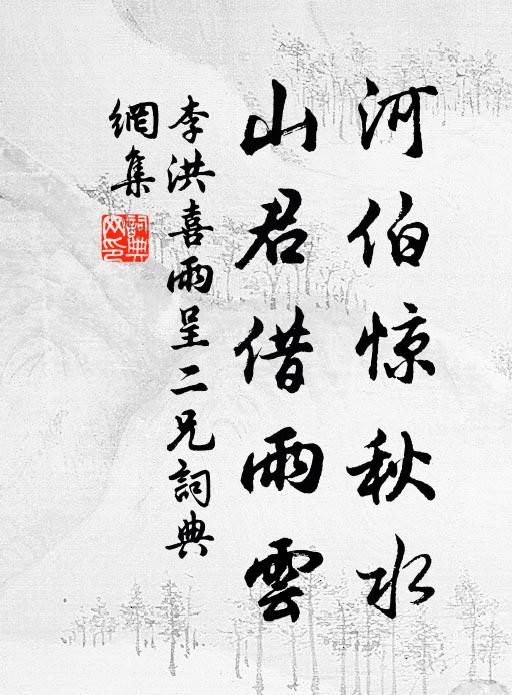 河伯惊秋水
山君借雨雲
李洪喜雨呈二兄詞典
網集
詞典
网印